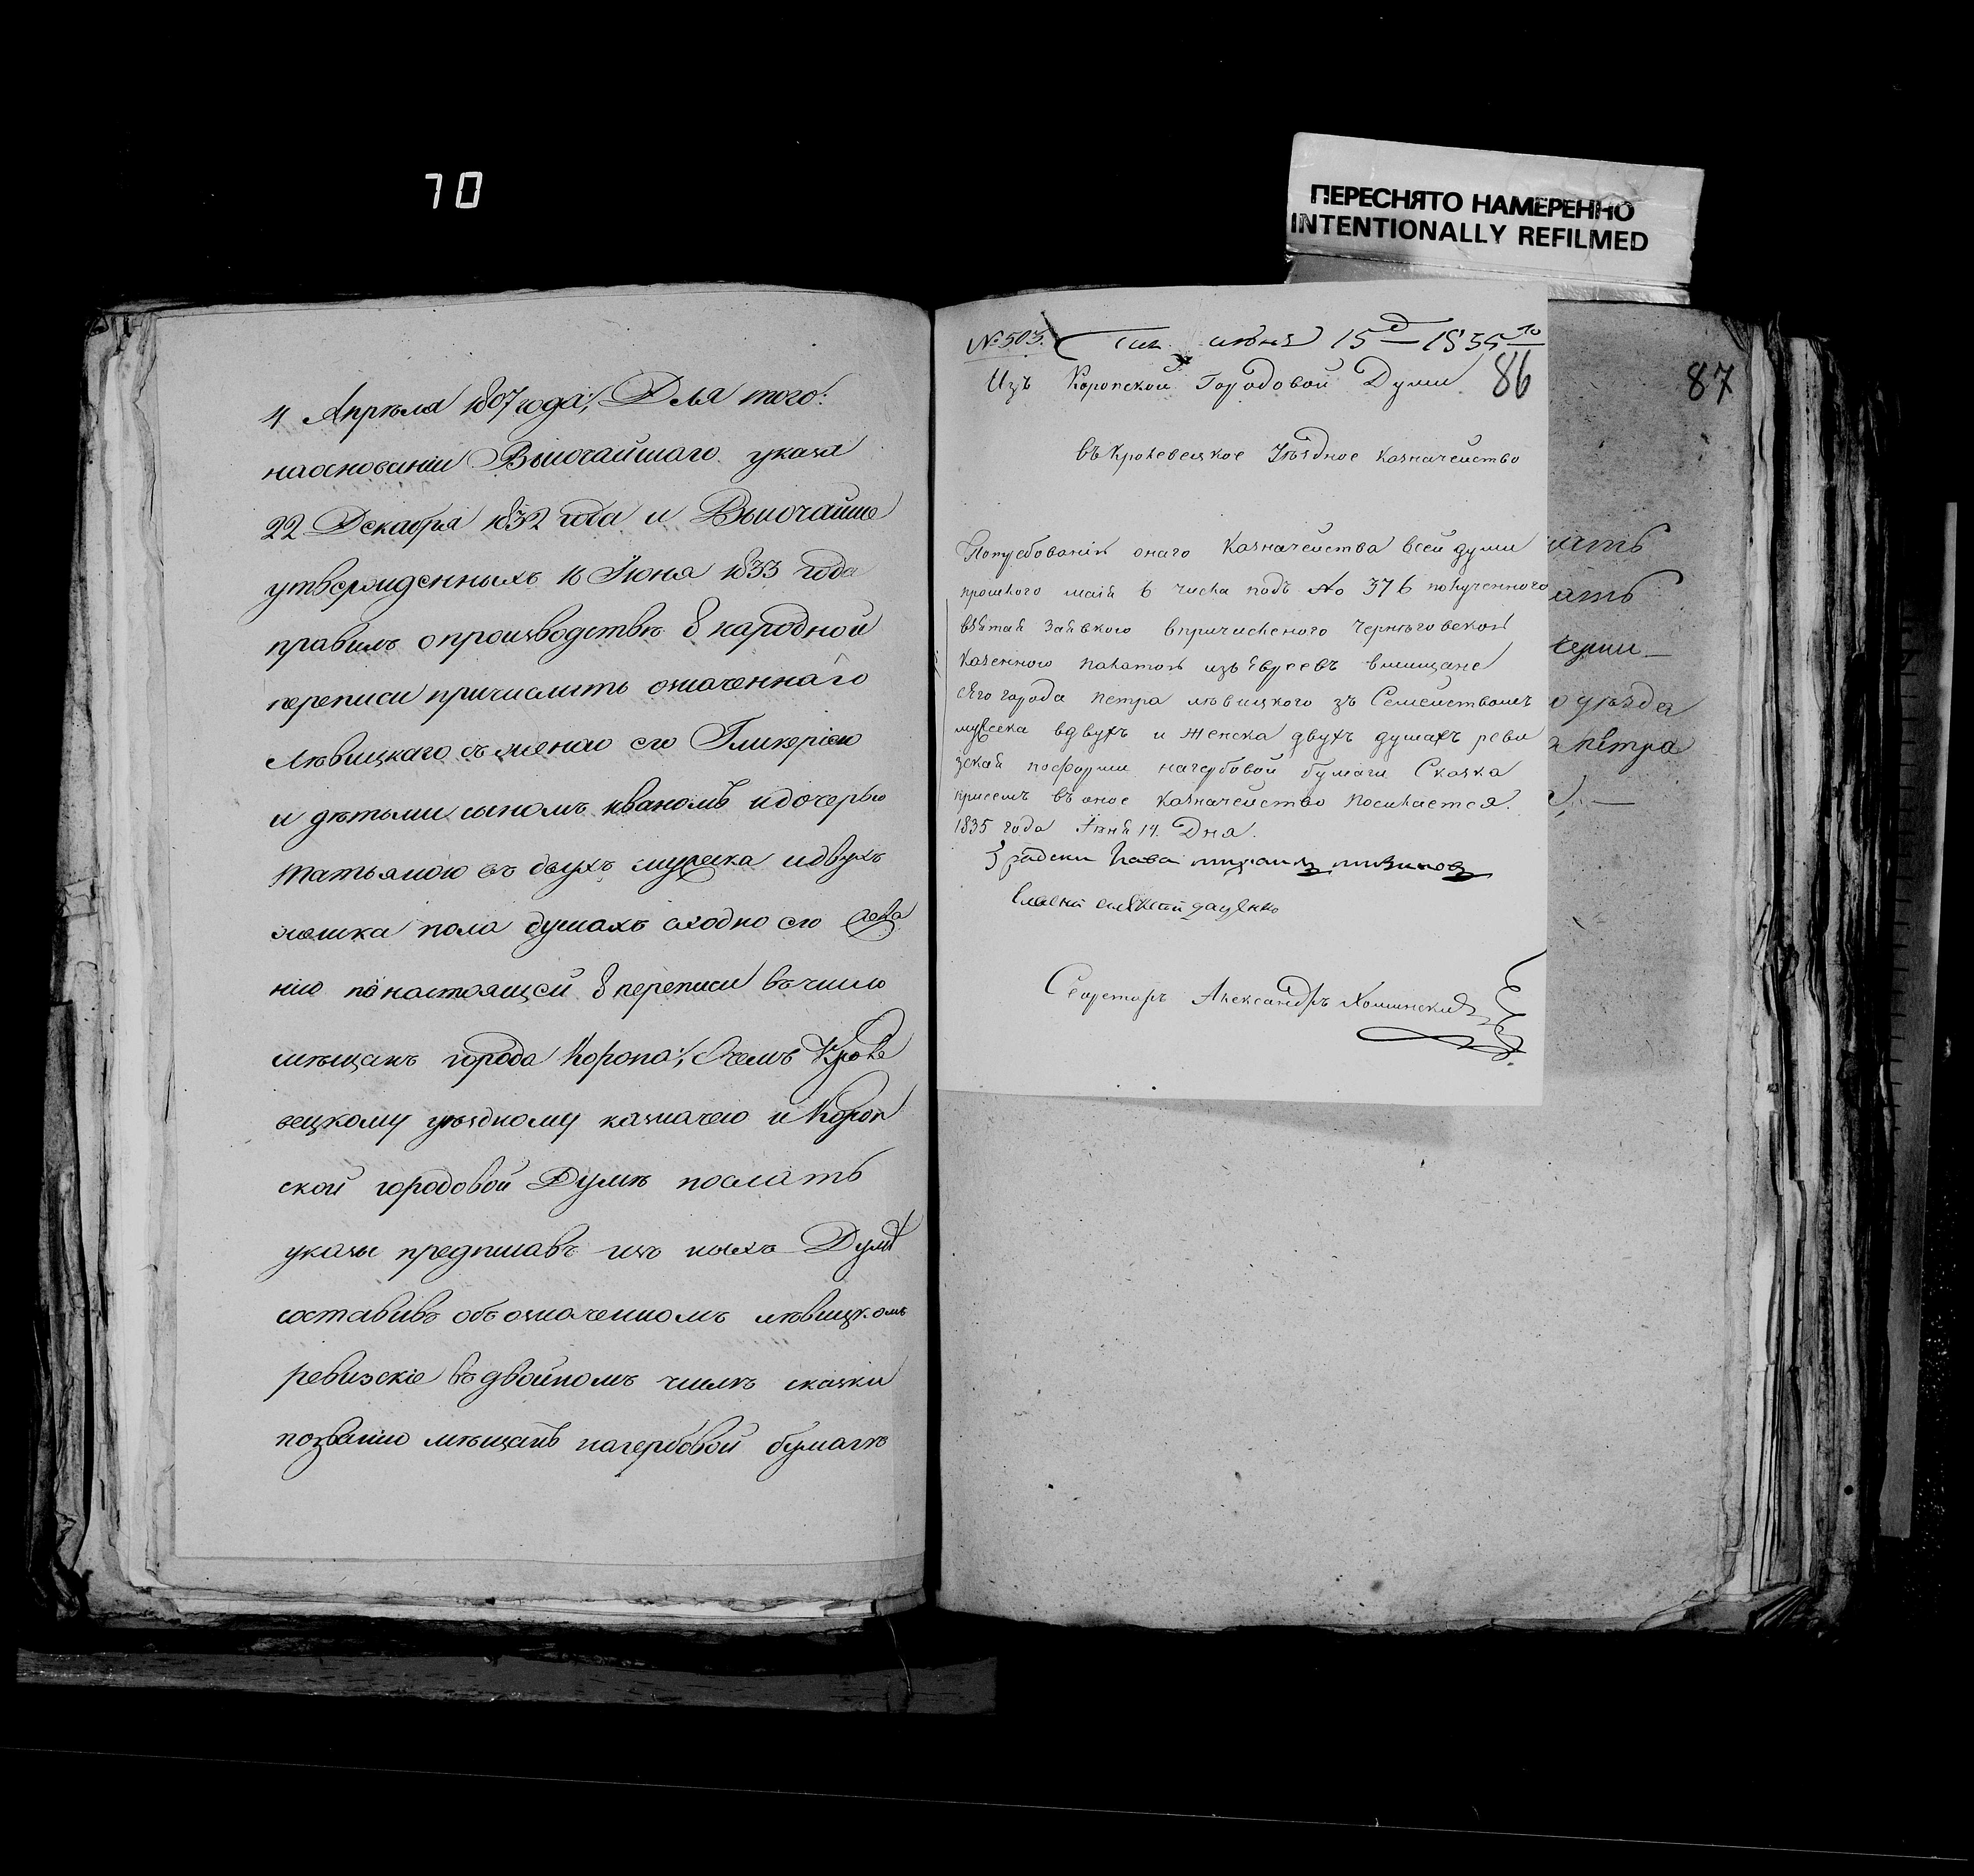 70
ПЕРЕСНЯТО НАМЕРЕННО
INTENTIONALLY REFILMED
4 Апрѣля 1807 года;/ Для того:
наосновании Высочайшаго указа
22 Декабря 1832 года и Высочайше
утвержденныхъ 16 Июня 1833 года
правилъ опроизводствѣ 8 народной
переписи причислить означеннаго
Лѣвицкаго съ женою его Гликеріею
и дѣтьми сыномъ иваномъ идочерью
татьяною въ двухъ мужеска идвухъ
женска пола душахъ сходно его жела
нію по настоящей 8 переписи въ число
мѣщанъ города Коропа;/ Очемъ Кроле
вецкому уѣздному казначею и Короп
ской городовой Думѣ послать
указы предписавъ изъ ныхъ Думѣ
составивъ объ означенномъ лѣвицкомъ
ревизскіе въ двойномъ числѣ сказки
позванію мѣщанъ нагербовой бумагѣ
87
№ 503.
июня 15 1835
86
Изъ Коропской Городовой Думи
въ Кролевецкое Уѣздное Казначейство
Потребованія онаго Казначейства всей думи
прошлого маія 6 числа подъ No 376 полученного
причисленого Чернѣговекой
Казенного Палатою изъ Евреевъ вмищане
сего города Петра лѣвицкого зъ Семействомъ
мужеска вдвухъ и женска двухъ душахъ реви
зская поформи нагербовой бумаги Сказка
присемъ въ оное Казначейство Посилается.
1835 года Июня 14. Дня.
Градски Глава михаилъ
Гласни
Секретарь Александръ Хоминский
уѣзда
Петра